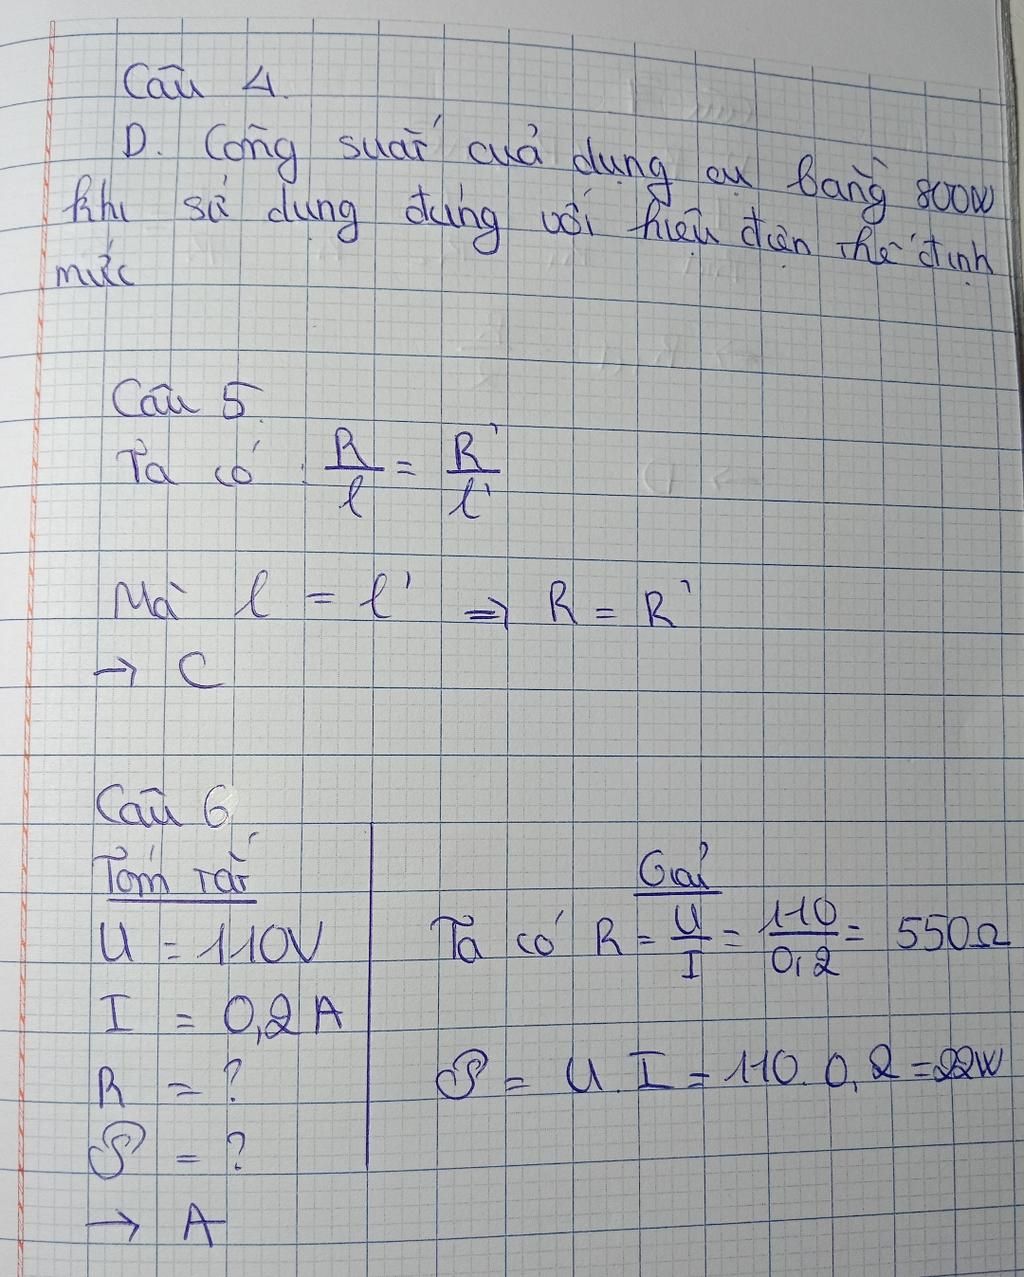 Câu 4.
D. Công suất của dụng cụ bằng 800W
khi sử dụng đúng với hiệu điện thế định
mức
Câu 5.
Ta có: R/l = R'/l'
Mà l = l' => R = R'
→ C
Câu 6
Tóm tắt
U = 110V
I = 0,2 A
R = ?
P = ?
→ A
Giải
Ta có R = U/I = 110/0,2 = 550Ω
P = U.I = 110.0,2 = 22W